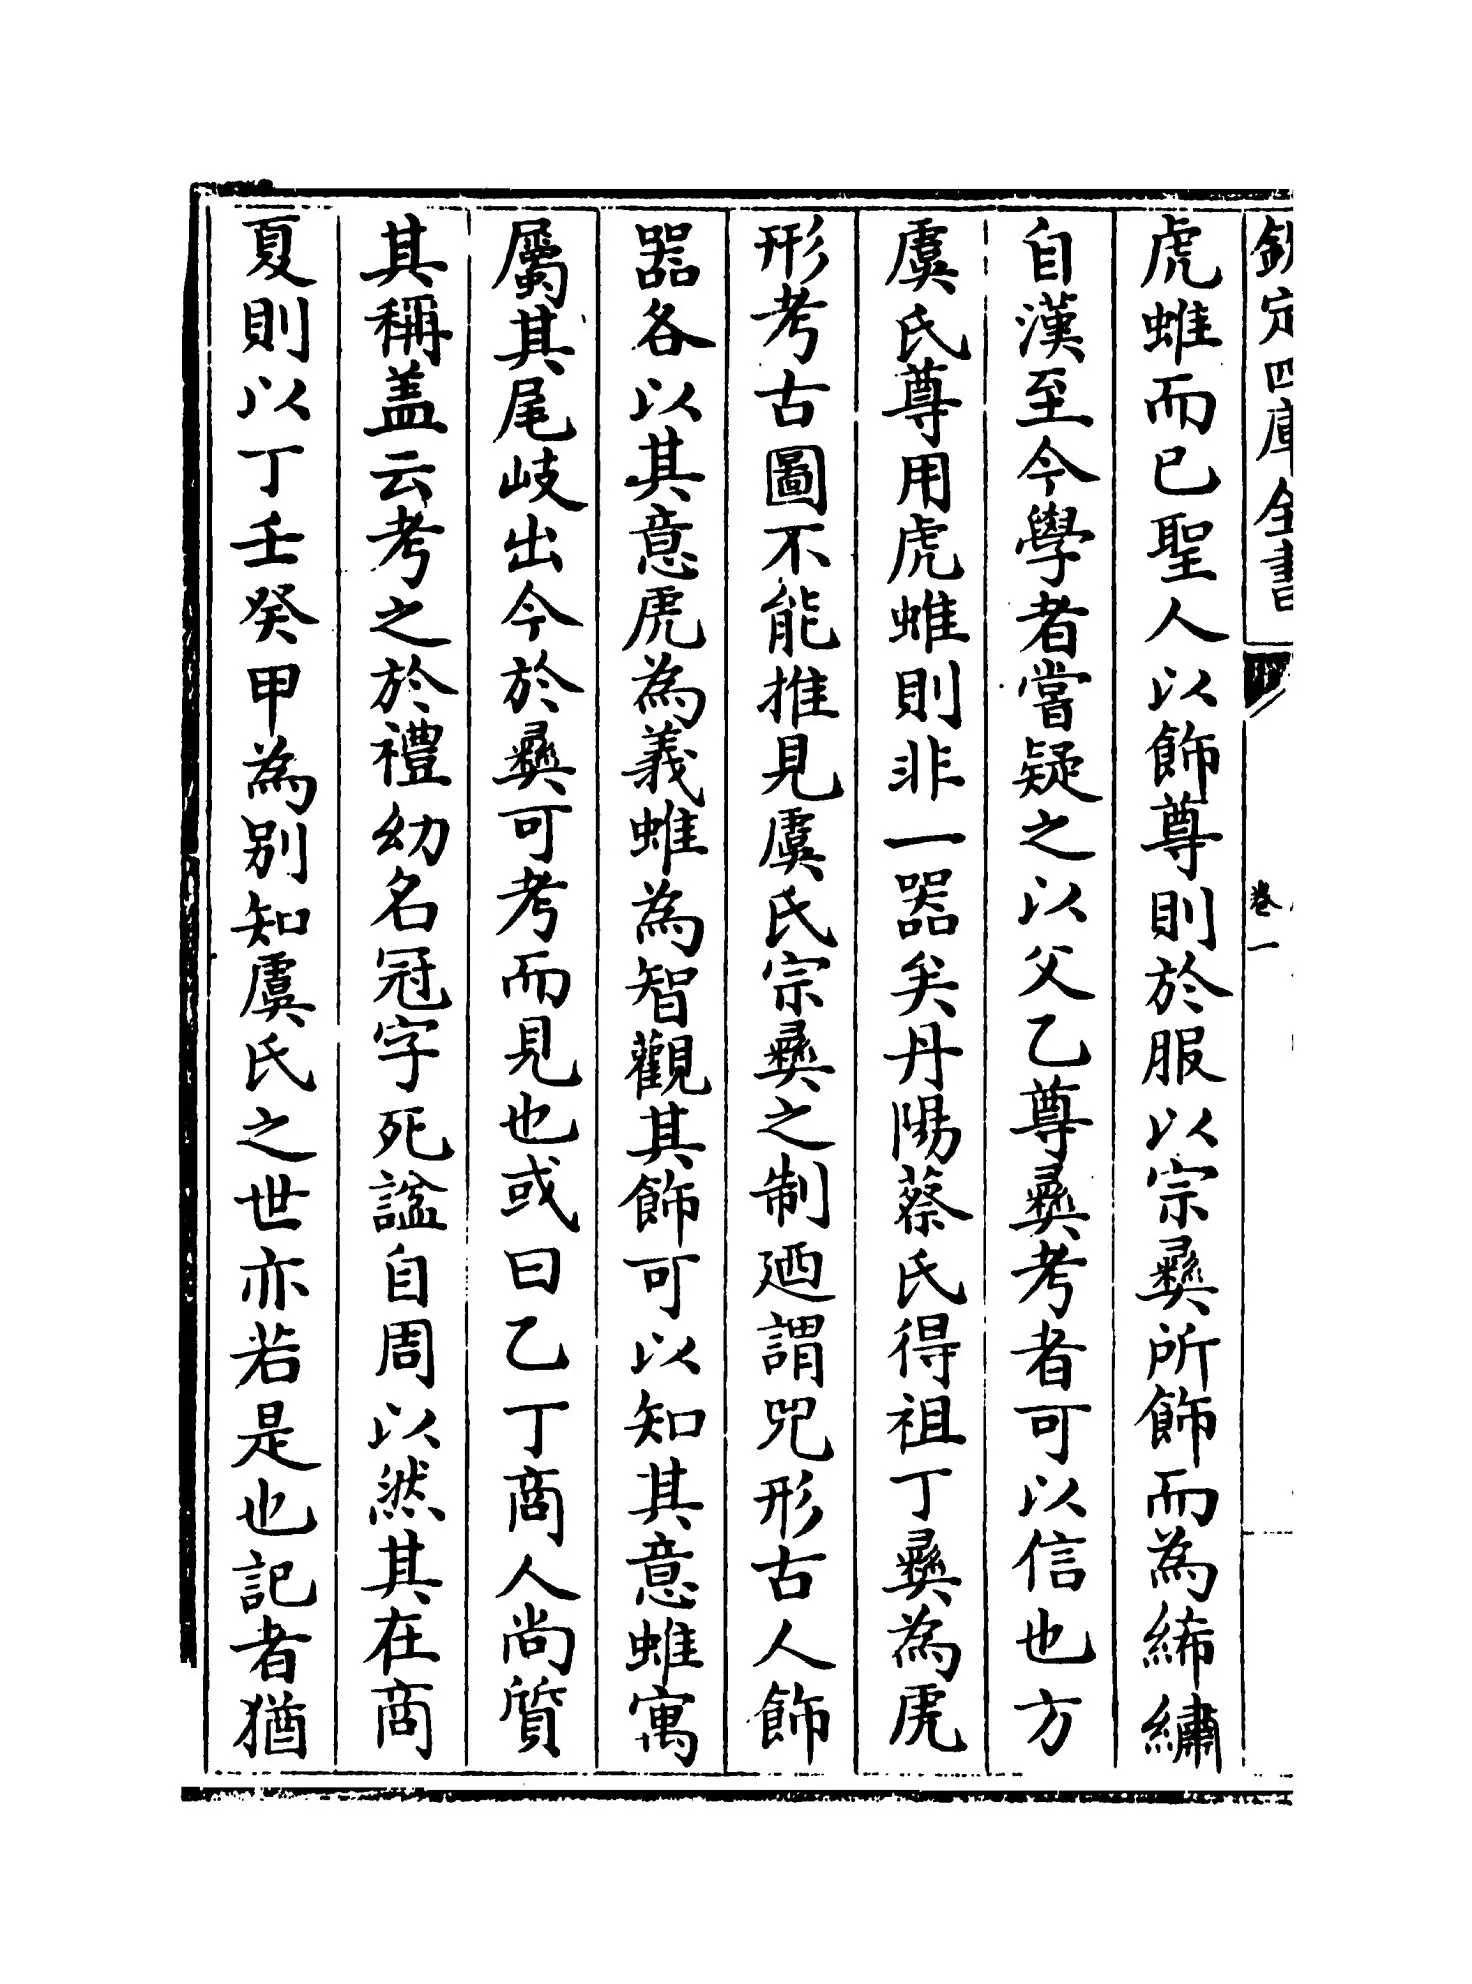 欽定四庫全書
卷一
虎蜼而已聖人以飾尊則於服以宗彞所飾而為絺繡
自漢至今學者嘗疑之以父乙尊彞考者可以信也方
虞氏尊用虎蜼則非一器矣丹陽蔡氏得祖丁彞為虎
形考古圖不能推見虞氏宗彞之制廼謂兕形古人飾
器各以其意虎為義蜼為智觀其飾可以知其意蜼寓
屬其尾岐出今於彞可考而見也或曰乙丁商人尚質
其稱盖云考之於禮幼名冠字死諡自周以然其在商
夏則以丁壬癸甲為别知虞氏之世亦若是也記者猶